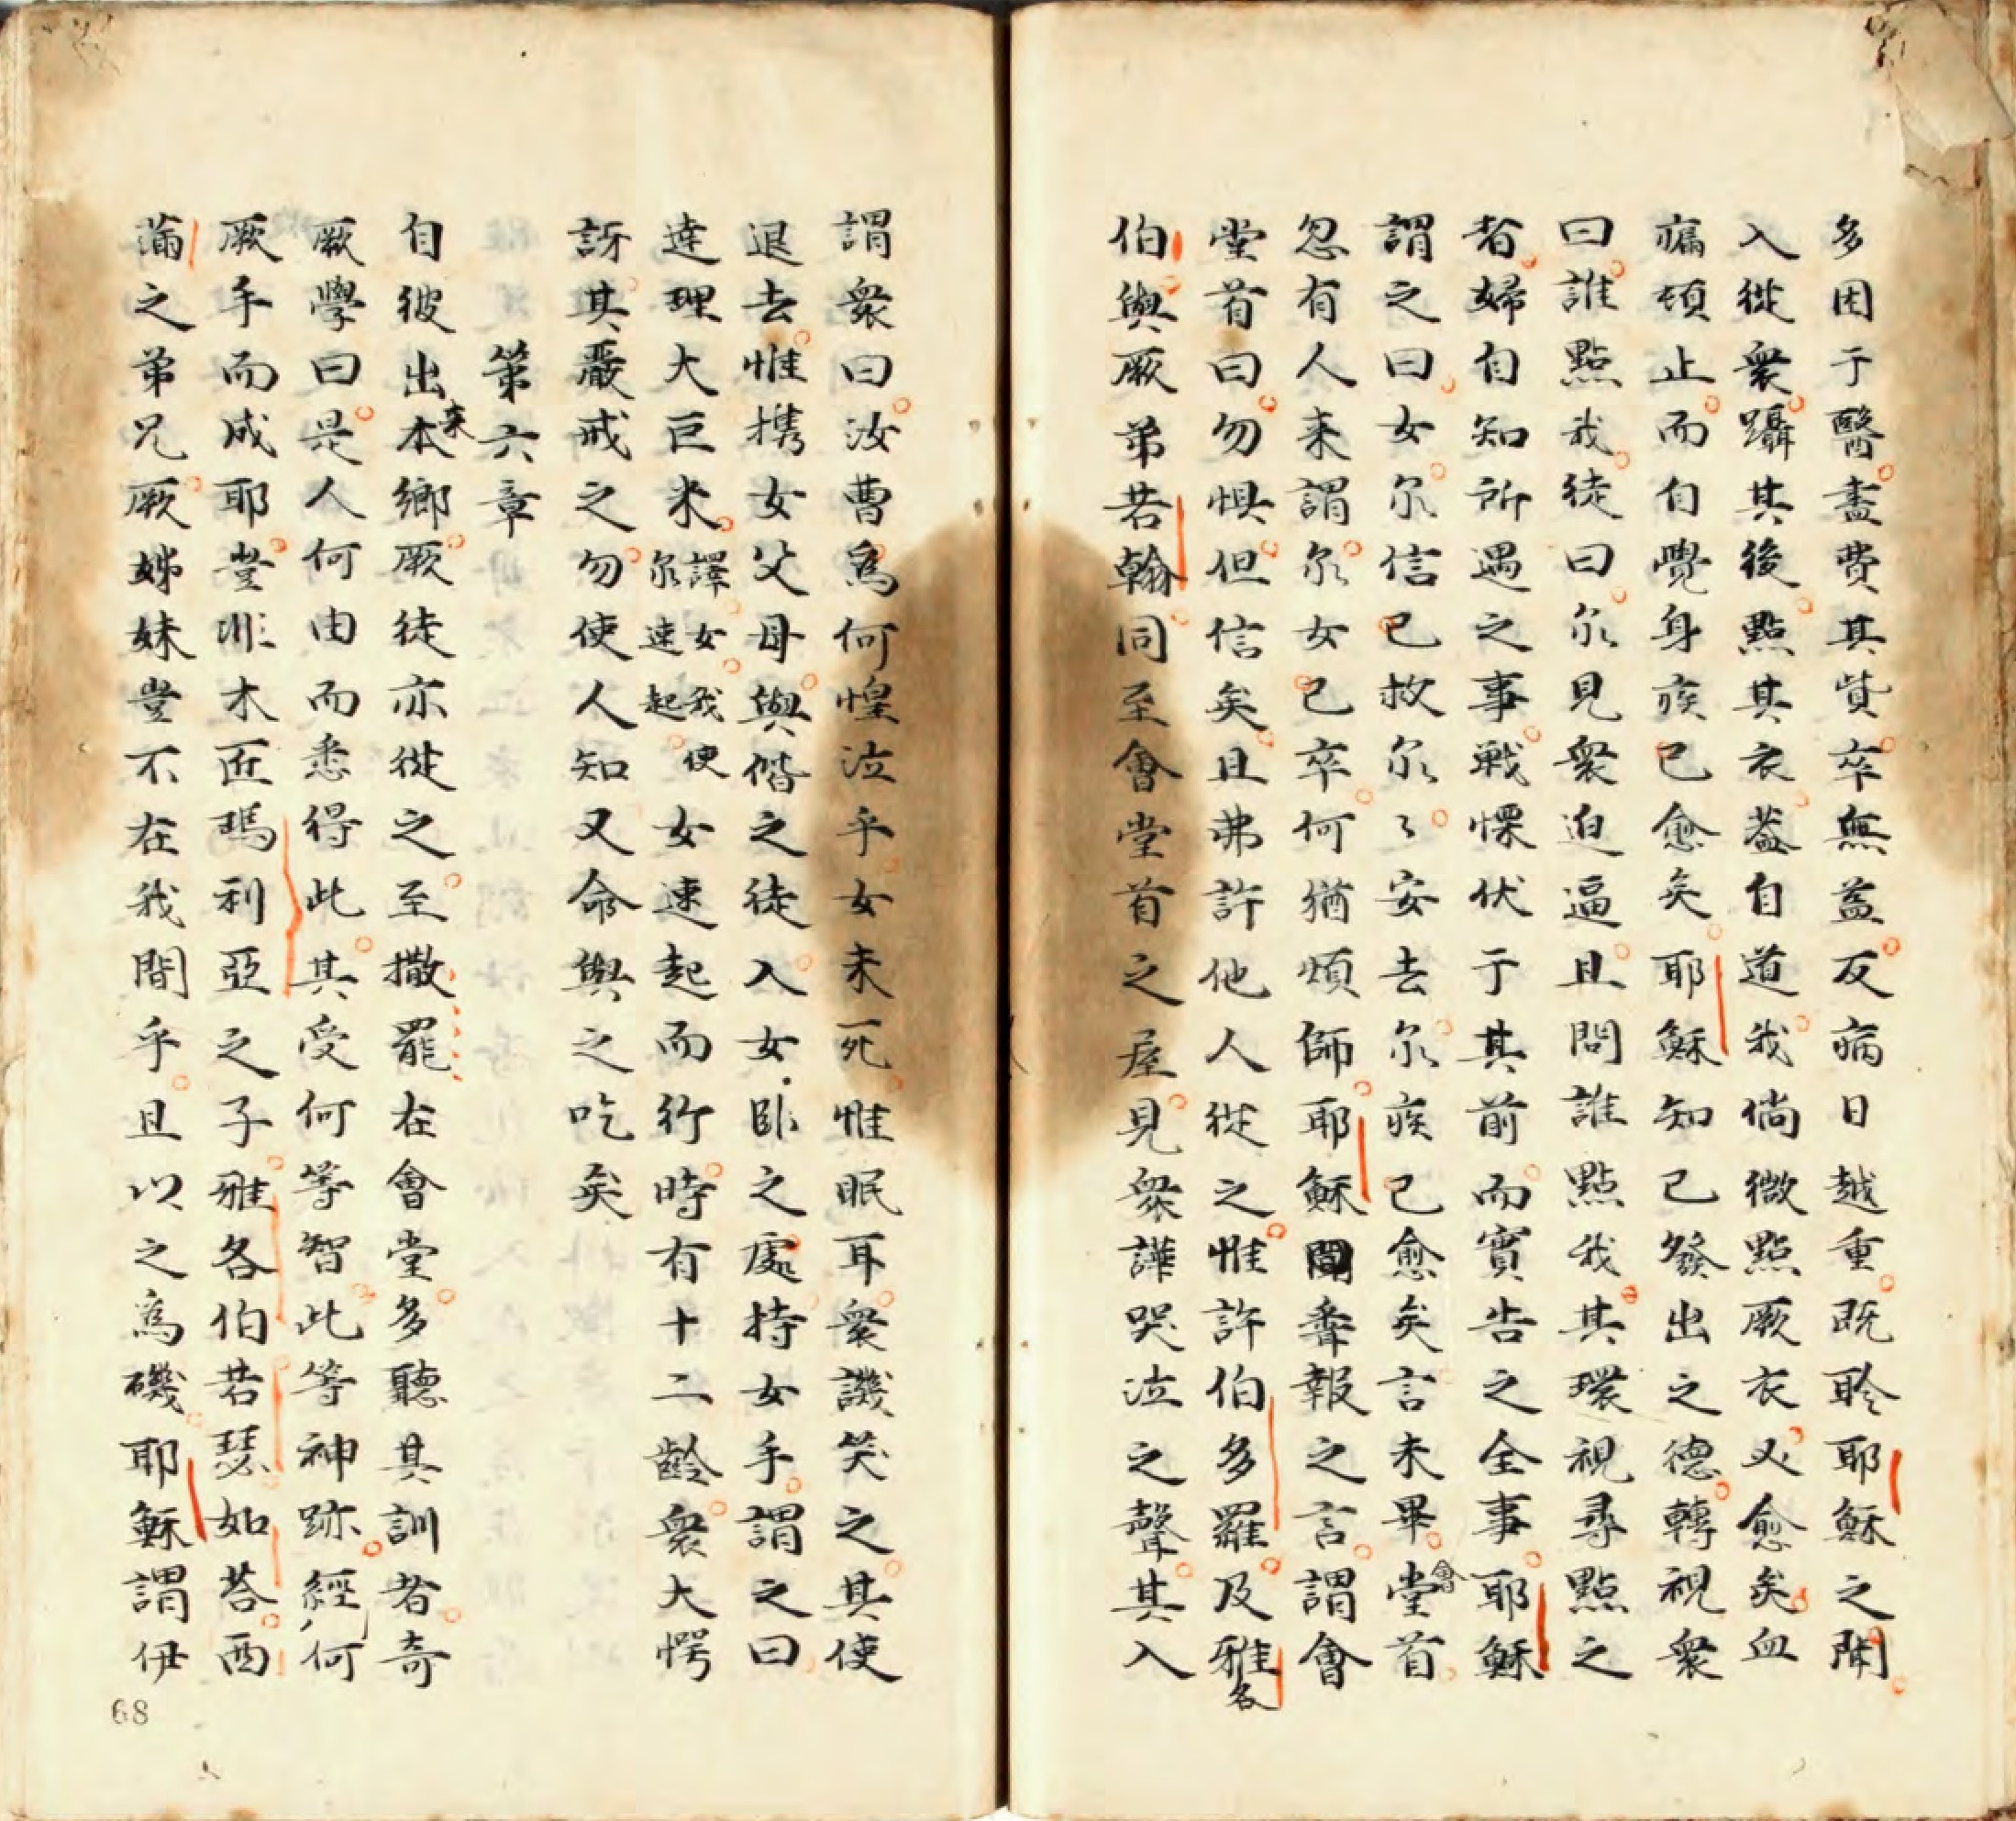 多困于醫盡費其貲卒無益反病日越重既聆耶穌之聞
入從衆躡其後點其衣蓋自道我倘微點厥衣必愈矣血
漏頓止而自覺身疾已愈矣耶穌知己發出之德轉視衆
曰誰點我徒曰尔見衆迫逼且問誰點我其環視尋點之
者婦自知所遇之事戰慄伏于其前而實告之全事耶穌
謂之曰女尔信已救尔尔安去尔疾已愈矣言未畢會堂首
忽有人来謂尔女已卒何猶煩師耶穌聞彝報之言謂會
堂首曰勿惧但信矣且弗許他人從之惟許伯多羅及雅各
伯與厥弟若翰同至會堂首之屋見衆譁哭泣之聲其入
謂衆曰汝曹爲何惶泣乎女未死惟眠耳衆譏笑之其使
退去惟携女父母與偕之徒入女卧之處持女手謂之曰
達理大巨米譯女我使尔速起女速起而行時有十二齡衆大愕
訝其嚴戒之勿使人知又命與之吃矣
第六章
自彼出来本鄉厥徒亦從之至撒罷在會堂多聽其訓者奇
厥學曰是人何由而悉得此其受何等智此等神跡經何
厥手而成耶豈非木匠瑪利亞之子雅各伯若瑟如荅西
滿之弟兄厥姊妹豈不在我間乎且以之爲磯耶穌謂伊
68